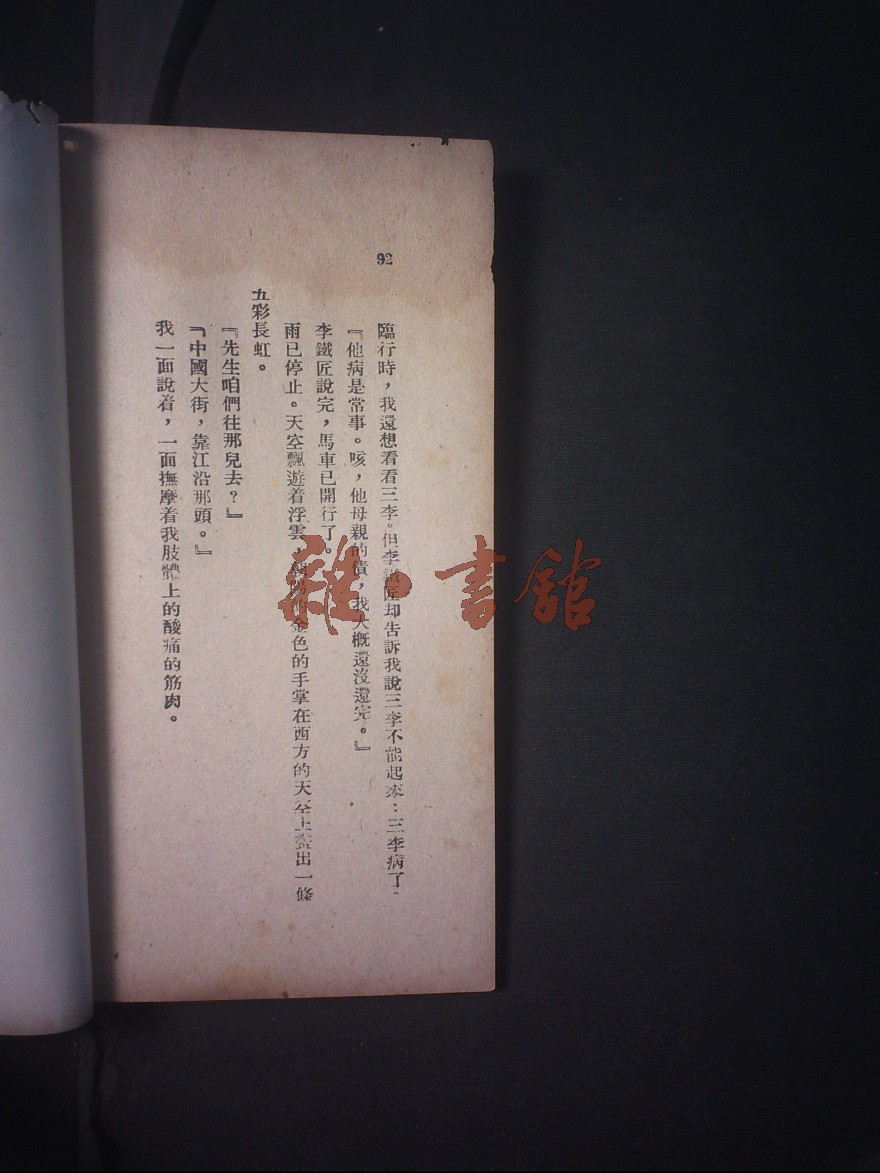 92
臨行時，我還想看看三李。但李鐵匠却告訴我說三李不能起來：三李病了。
『他病是常事。咳，他母親的債，我大概還沒還完。』
李鐵匠說完，馬車已開行了。
雨已停止。天空飄遊着浮雲，朝陽的金色的手掌在西方的天空上畫出一條
五彩長虹。
『先生咱們往那兒去？』
『中國大街，靠江沿那頭。』
我一面說着，一面撫摩着我肢體上的酸痛的筋肉。
雜·書館